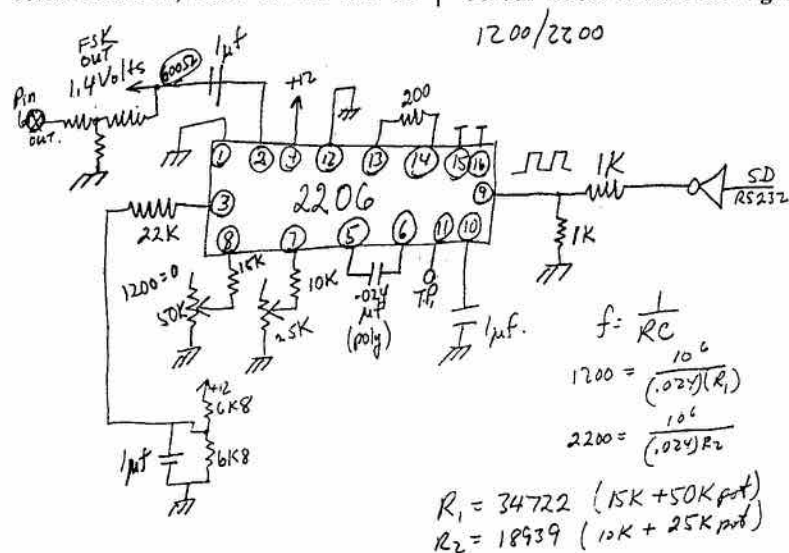 1200/2200
FSK
OUT
1.4 Volts
600Ω
1µf
+12
200
Pin
6
OUT.
1
2
4
12
13
14
15
16
2206
3
9
8
7
5
6
11
10
22K
1K
SD
RS232
1K
15K
1200=0
50K
10K
25K
.024
µf
(poly)
T.P.
1µf.
+12
6K8
6K8
1µf
f = 1/RC
1200 = 10⁶/(.024)(R₁)
2200 = 10⁶/(.024)R₂
R₁ = 34722 (15K + 50K pot)
R₂ = 18939 (10K + 25K pot)